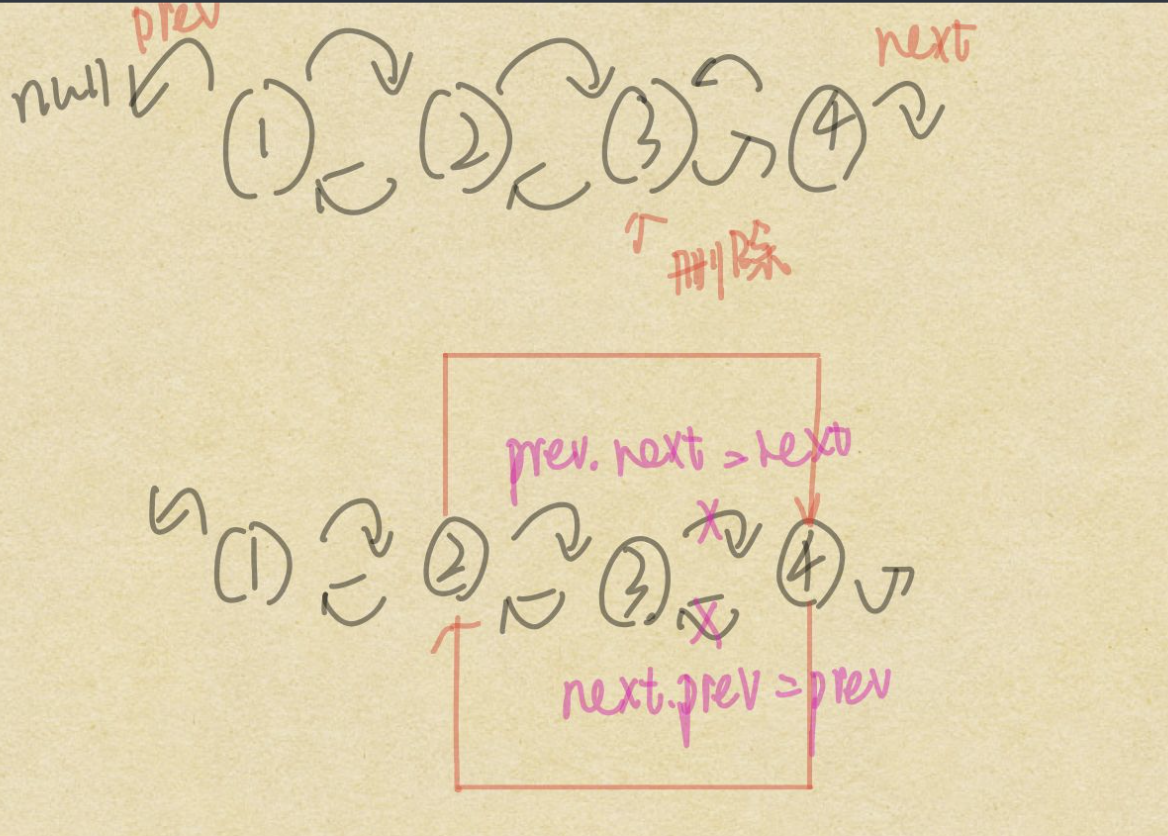 prev
next
null
(1) (2) (3) (4)
删除
prev.next = next
x
(1) (2) (3) (4)
x
next.prev = prev